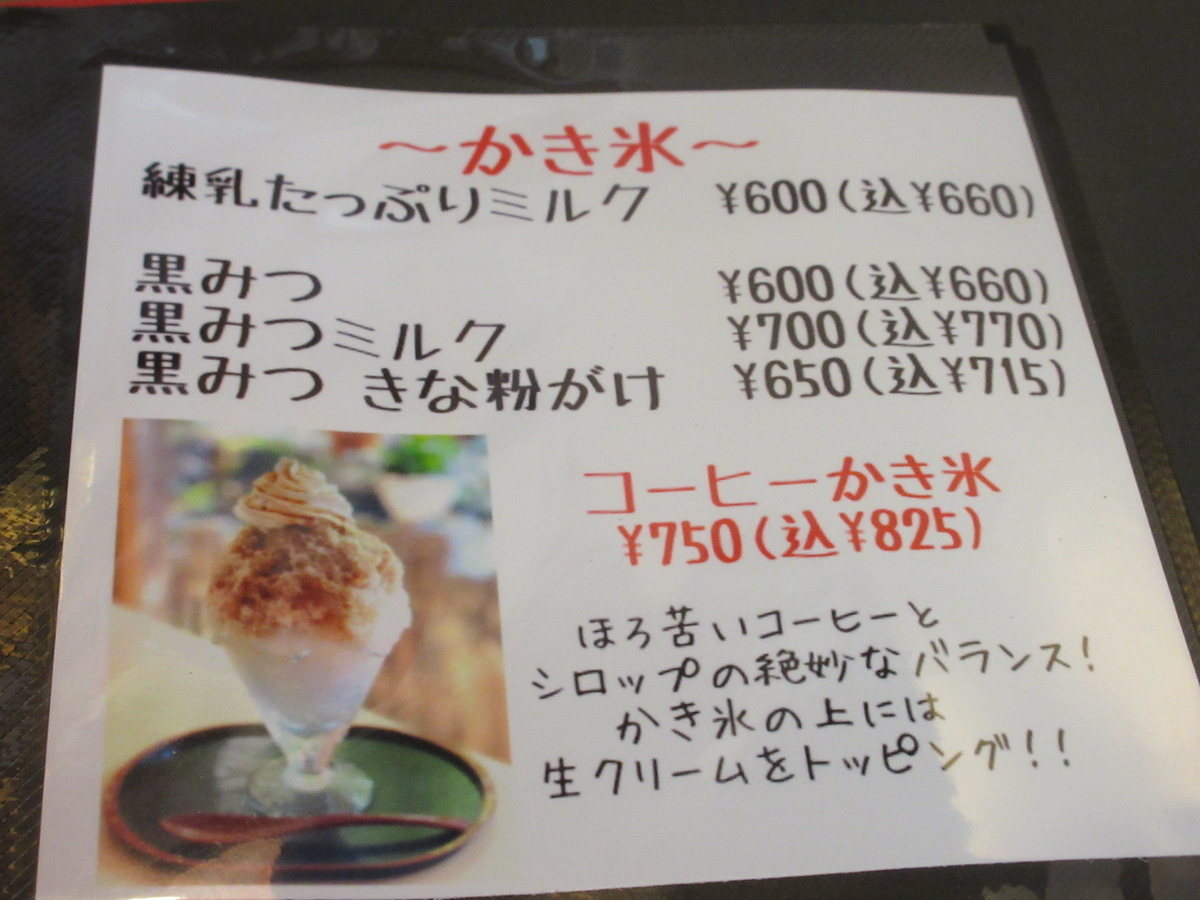 ～かき氷～
練乳たっぷりミルク ¥600(込¥660)
黒みつ ¥600(込¥660)
黒みつミルク ¥700(込¥770)
黒みつ きな粉がけ ¥650(込¥715)
コーヒーかき氷
¥750(込¥825)
ほろ苦いコーヒーと
シロップの絶妙なバランス!
かき氷の上には
生クリームをトッピング!!